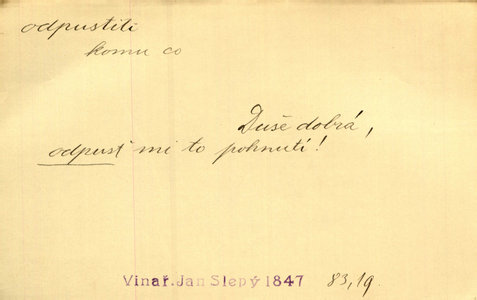 odpustiti
komu co
Duše dobrá,
odpusť mi to pohnutí!
Vinař. Jan Slepý 1847 83,19.